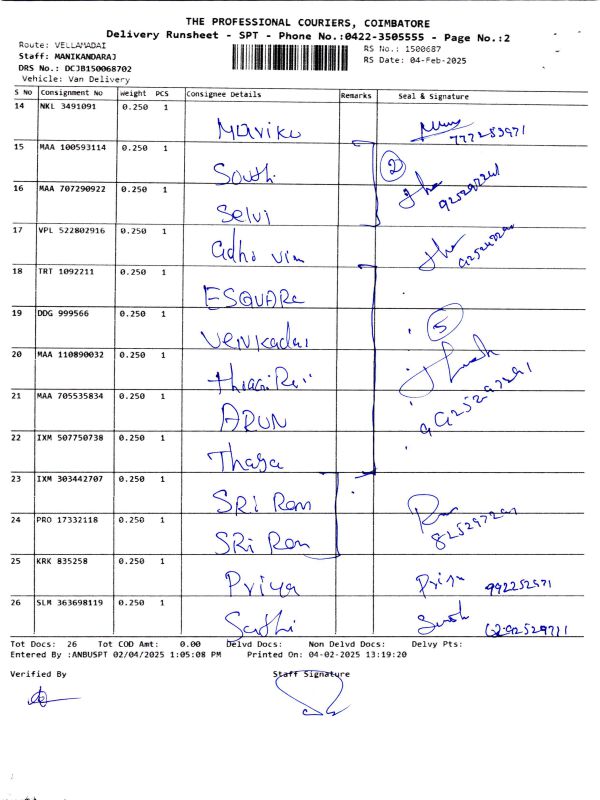 THE PROFESSIONAL COURIERS, COIMBATORE
Delivery Runsheet - SPT - Phone No.:0422-3505555 - Page No.:2
Route: VELLAMADAI
Staff: MANIKANDARAJ
DRS No.: DCJB150068702
Vehicle: Van Delivery
RS No.: 1500687
RS Date: 04-Feb-2025
S No Consignment No Weight PCS Consignee Details Remarks Seal & Signature
14 NKL 3491091 0.250 1
15 MAA 100593114 0.250 1 South 2
16 MAA 707290922 0.250 1 Selvi
17 VPL 522802916 0.250 1
18 TRT 1092211 0.250 1 ESQUARe
19 DDG 999566 0.250 1 Venkadai 5
20 MAA 110890032 0.250 1
21 MAA 705535834 0.250 1 ARUN
22 IXM 507750738 0.250 1
23 IXM 303442707 0.250 1 SRI Ram
24 PRO 17332118 0.250 1 SRi Ram
25 KRK 835258 0.250 1 Priya Priya
26 SLM 363698119 0.250 1
Tot Docs: 26 Tot COD Amt: 0.00 Delvd Docs: Non Delvd Docs: Delvy Pts:
Entered By :ANBUSPT 02/04/2025 1:05:08 PM Printed On: 04-02-2025 13:19:20
Verified By Staff Signature